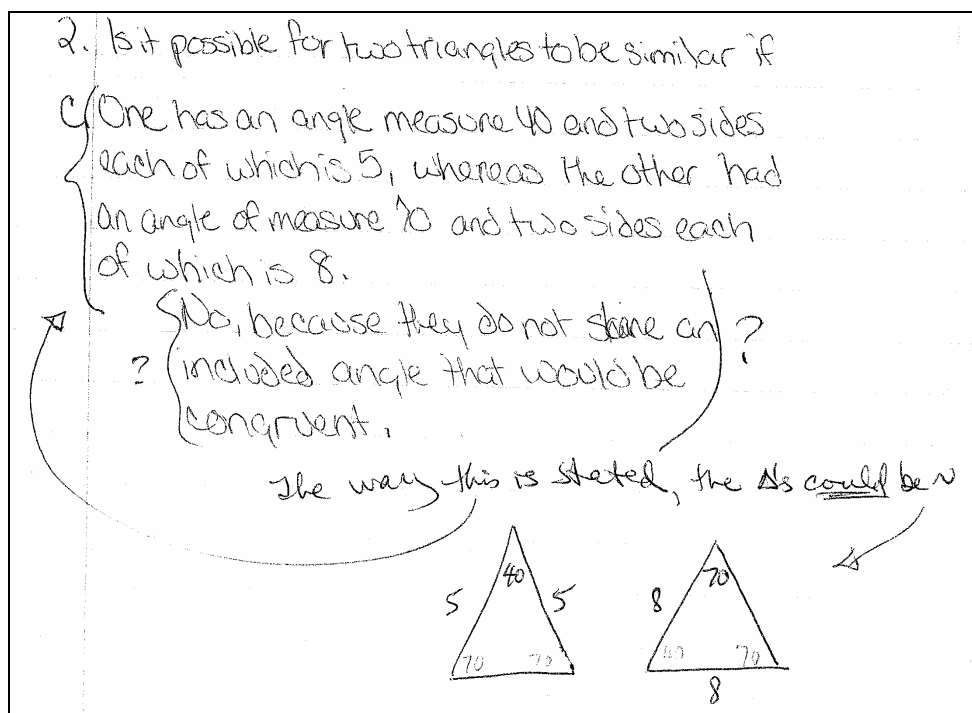 2. Is it possible for two triangles to be similar if
c) One has an angle measure 40 and two sides
each of which is 5, whereas the other had
an angle of measure 70 and two sides each
of which is 8.
No, because they do not share an ?
? included angle that would be
congruent.
The way this is stated, the Δs could be ~
40 70
5 5 8
70 70 40 70
8